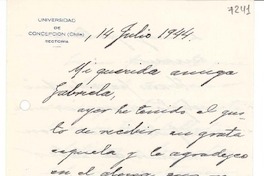 7241
UNIVERSIDAD
DE
CONCEPCION (Chile)
RECTORIA
, 14 Julio 1944.
Mi querida amiga
Gabriela,
ayer he tenido el gus-
to de recibir su grata
esquela y la agradezco
en el